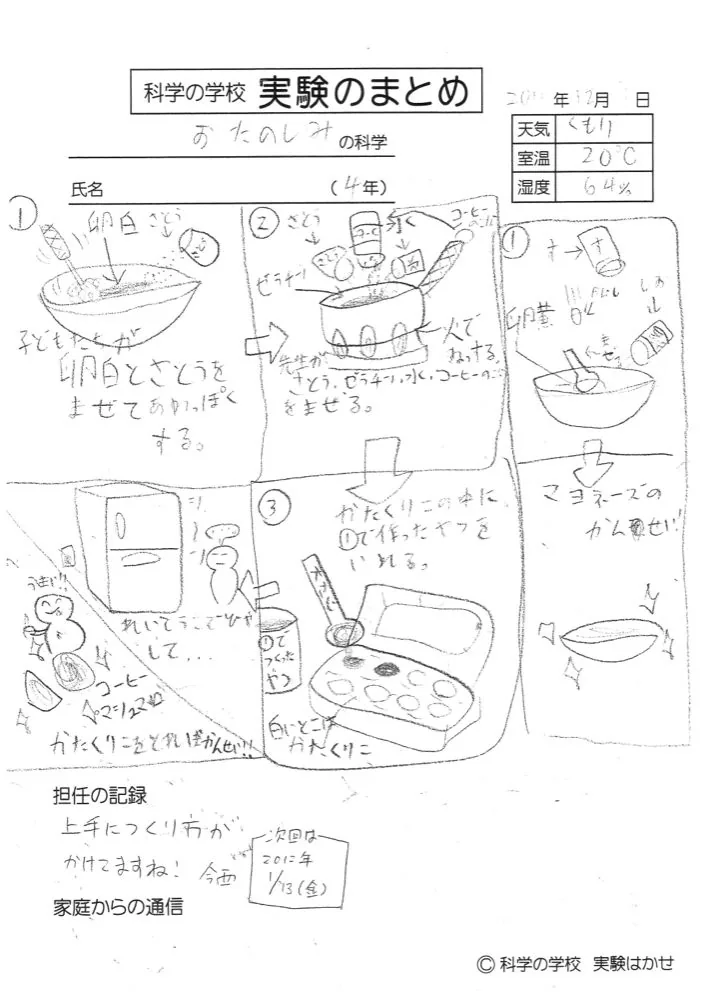 科学の学校 実験のまとめ
年12月 日
おたのしみの科学
天気 くもり
室温 20℃
湿度 64%
氏名 (4年)
①
卵白 さとう
子どもたちが
卵白とさとうを
まぜてあわっぽく
する。
②
さとう 水 コーヒー
ゼラチン
火で
ねっする。
先生が
さとう、ゼラチン、水、コーヒーのこな
をまぜる。
①
す→ す
卵黄 しお
まぜる
マヨネーズの
かんせい!
③
かたくりこの中に
①で作ったヤツを
いれる。
①で
つくった
やつ
白いとこは
かたくりこ
れいぞうこでひや
して...
うまい!!
コーヒー
マシュマロ
かたくりこをとればかんせい!!
担任の記録
上手につくり方が
かけてますね! 今西
次回は
2012年
1/13(金)
家庭からの通信
© 科学の学校 実験はかせ